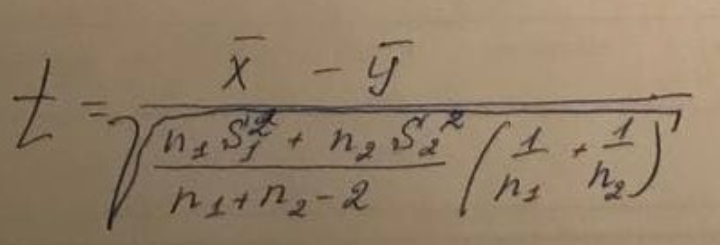 t = \frac{\bar{x} - \bar{y}}{\sqrt{\frac{n_1 S_1^2 + n_2 S_2^2}{n_1 + n_2 - 2} \left( \frac{1}{n_1} + \frac{1}{n_2} \right)}}